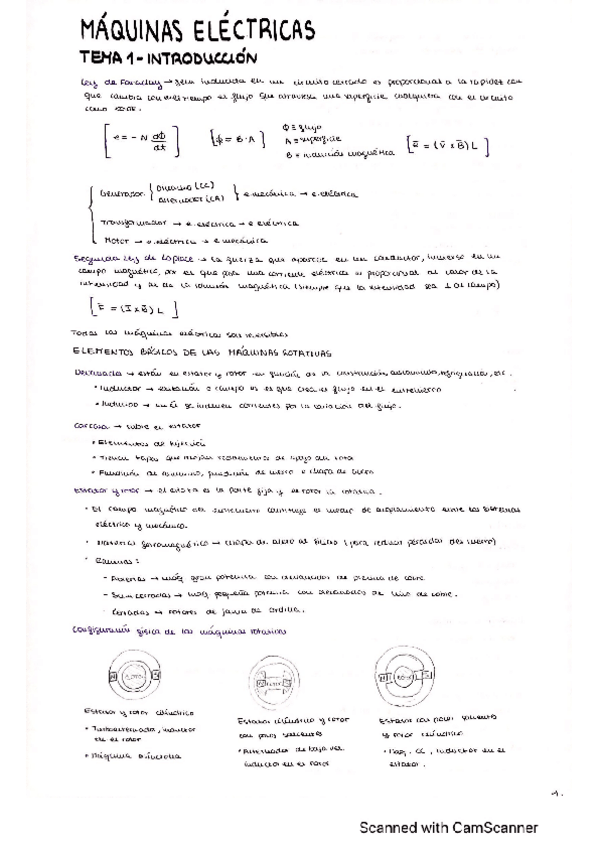 MÁQUINAS ELÉCTRICAS
TEMA 1 - INTRODUCCIÓN
Ley de Faraday → fem inducida en un circuito cerrado es proporcional a la rapidez con
que cambia con el tiempo el flujo que atraviesa una superficie cualquiera con el circuito
como borde.
[e = - N dΦ/dt] [ϕ = B · A] Φ ≡ flujo
A ≡ superficie
B ≡ inducción magnética
[ē = (v̄ x B̄) L]
Generador { Dinamo (CC)
Alternador (CA) } e. mecánica → e. eléctrica
Transformador → e. eléctrica → e. eléctrica
Motor → e. eléctrica → e. mecánica
Segunda Ley de Laplace → La fuerza que aparece en un conductor, inmerso en un
campo magnético, por el que pasa una corriente eléctrica es proporcional al valor de la
intensidad y al de la inducción magnética (siempre que la intensidad sea ⊥ al campo)
[F̄ = (Ī x B̄) L]
Todas las máquinas eléctricas son reversibles
ELEMENTOS BÁSICOS DE LAS MÁQUINAS ROTATIVAS
Devanado → están en estator y rotor en función de la construcción, aislamiento, etc.
• Inductor → excitación o campo es el que crea el flujo en el entrehierro
• Inducido → en él se inducen corrientes por la variación del flujo.
Carcasa → cubre el estator
• Elementos de fijación
• Fundición de aluminio, fundición de hierro o chapa de hierro
Estator y rotor → el estator es la parte fija y el rotor la rotativa.
• El campo magnético del entrehierro constituye el medio de acoplamiento entre los sistemas
eléctrico y mecánico.
• Material ferromagnético → chapa de acero al silicio (para reducir pérdidas del hierro)
• Ranuras:
- Abiertas → máq. gran potencia con devanados de pletina de cobre.
- Semicerradas → máq. pequeña potencia con devanados de hilo de cobre.
- Cerradas → rotores de jaula de ardilla.
Configuración física de las máquinas rotativas
Estator y rotor cilíndrico
• Turboalternador, inductor
en el rotor
• Máquina asíncrona
Estator cilíndrico y rotor
con polos salientes
• Alternador de baja vel.
inductor en el rotor
Estator con polos salientes
y rotor cilíndrico
• Maq. CC, inductor en el
estator.
1.
Scanned with CamScanner